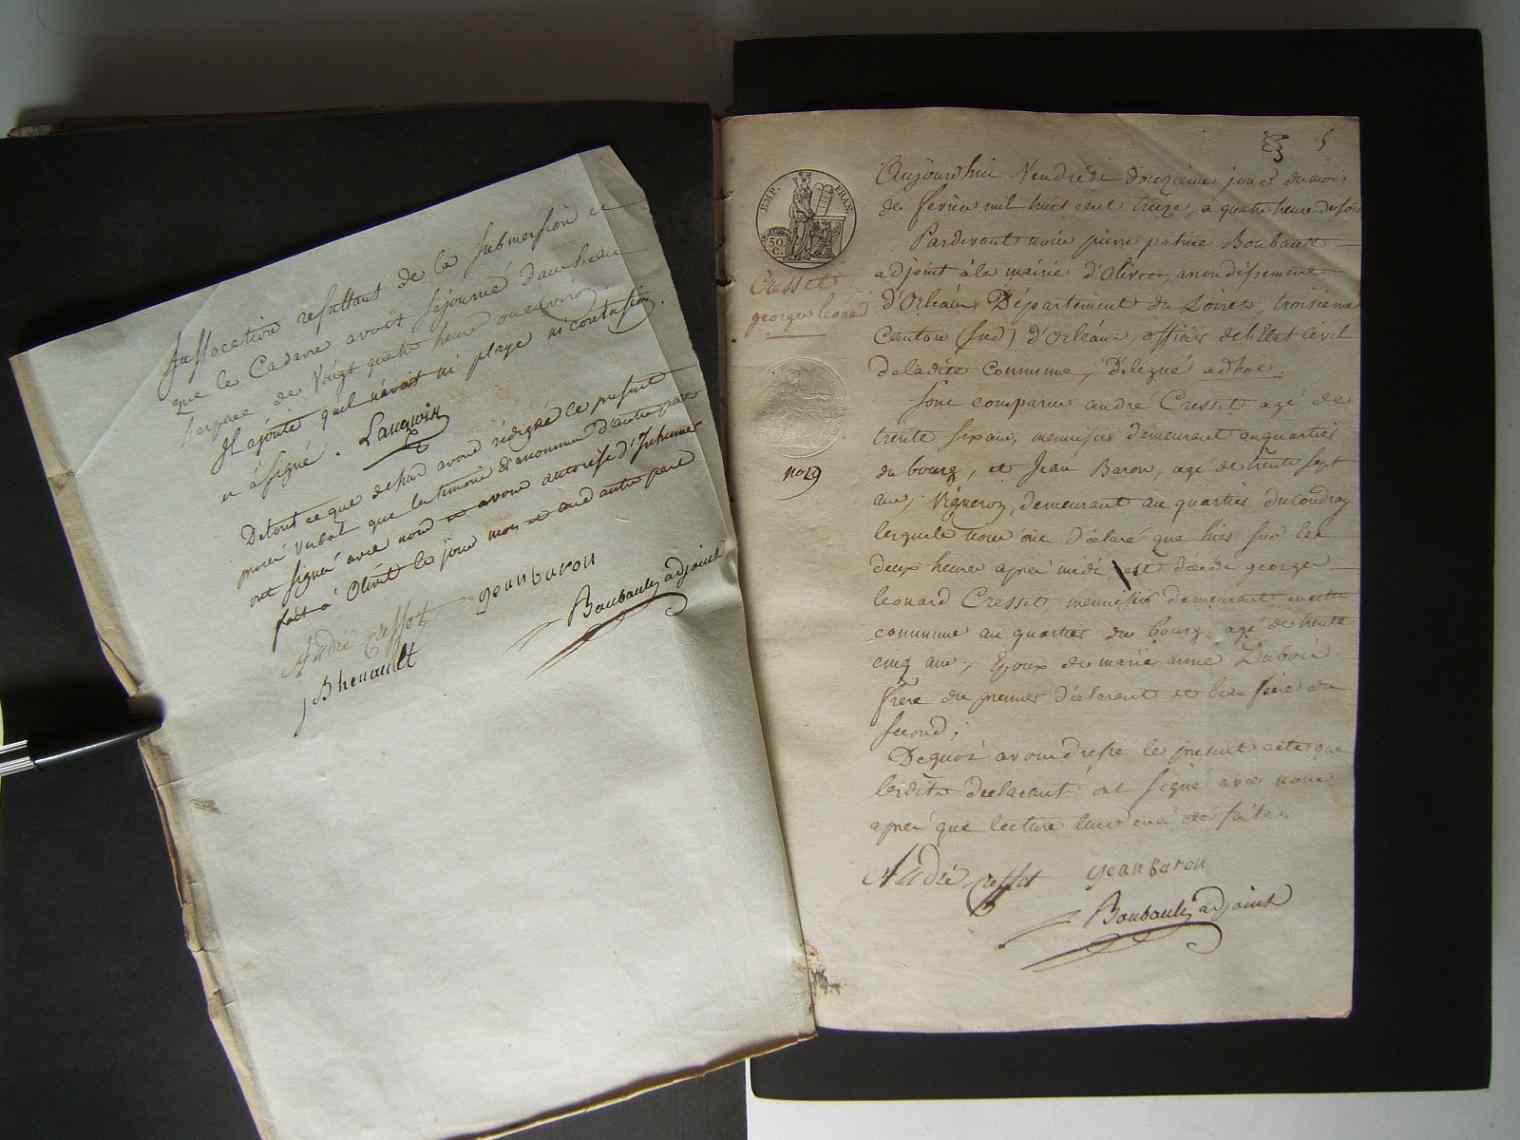 Suffocation resultant de la submersion et
que le Cadavre avoit séjourné dans l'eau
l'espace de Vingt quatre heure ou environ.
Il ajoute qu'il n'avoit ni playe ni contusion.
et à signé. Lanqwin
De tout ce que dessus avons rédigné le présent
procé verbal que les temoins dénommé d'autre part
ont signés avec nous et avons autorisé d'Inhumer
fait à Olivet les jour mois et an d'autre part
André Cresset jeanbaron
JBhenault Boubault adjoint
5
EMP. FRAN.
50 C.
Cresset
george léonard
no 19
Aujourdhui Vendredi Douzieme jour du mois
de fevrier mil huit cent treize, a quatre heure du soir
Pardevant nous pierre patrice Boubault
adjoint à la mairie d'Olivet, arrondissement
D'Orléans Département du Loiret, troisieme
Canton (sud) d'Orléans, officier de l'état civil
de la dite Commune, Délégué adhoc.
Sont comparus andré Cresset agé de
trente six ans, menuisier demeurant au quartier
du bourg, et Jean Baron, agé de trente sept
ans, Vigneron, demeurant au quartier du Coudray
lesquels nous ont d'éclaré que hier sur les
deux heures apres midi est décédé george
léonard Cresset, menuisier demeurant en cette
commune au quartier du bourg, agé de trente
cinq ans, Epoux de marie anne Dubois
frère du premier d'éclarant et beau frère du
second;
De quoi avons dressé le present acte que
lesdits declarant ont signé avec nous
après que lecture leur en a été faite.
André Cresset jeanbaron
Boubault adjoint